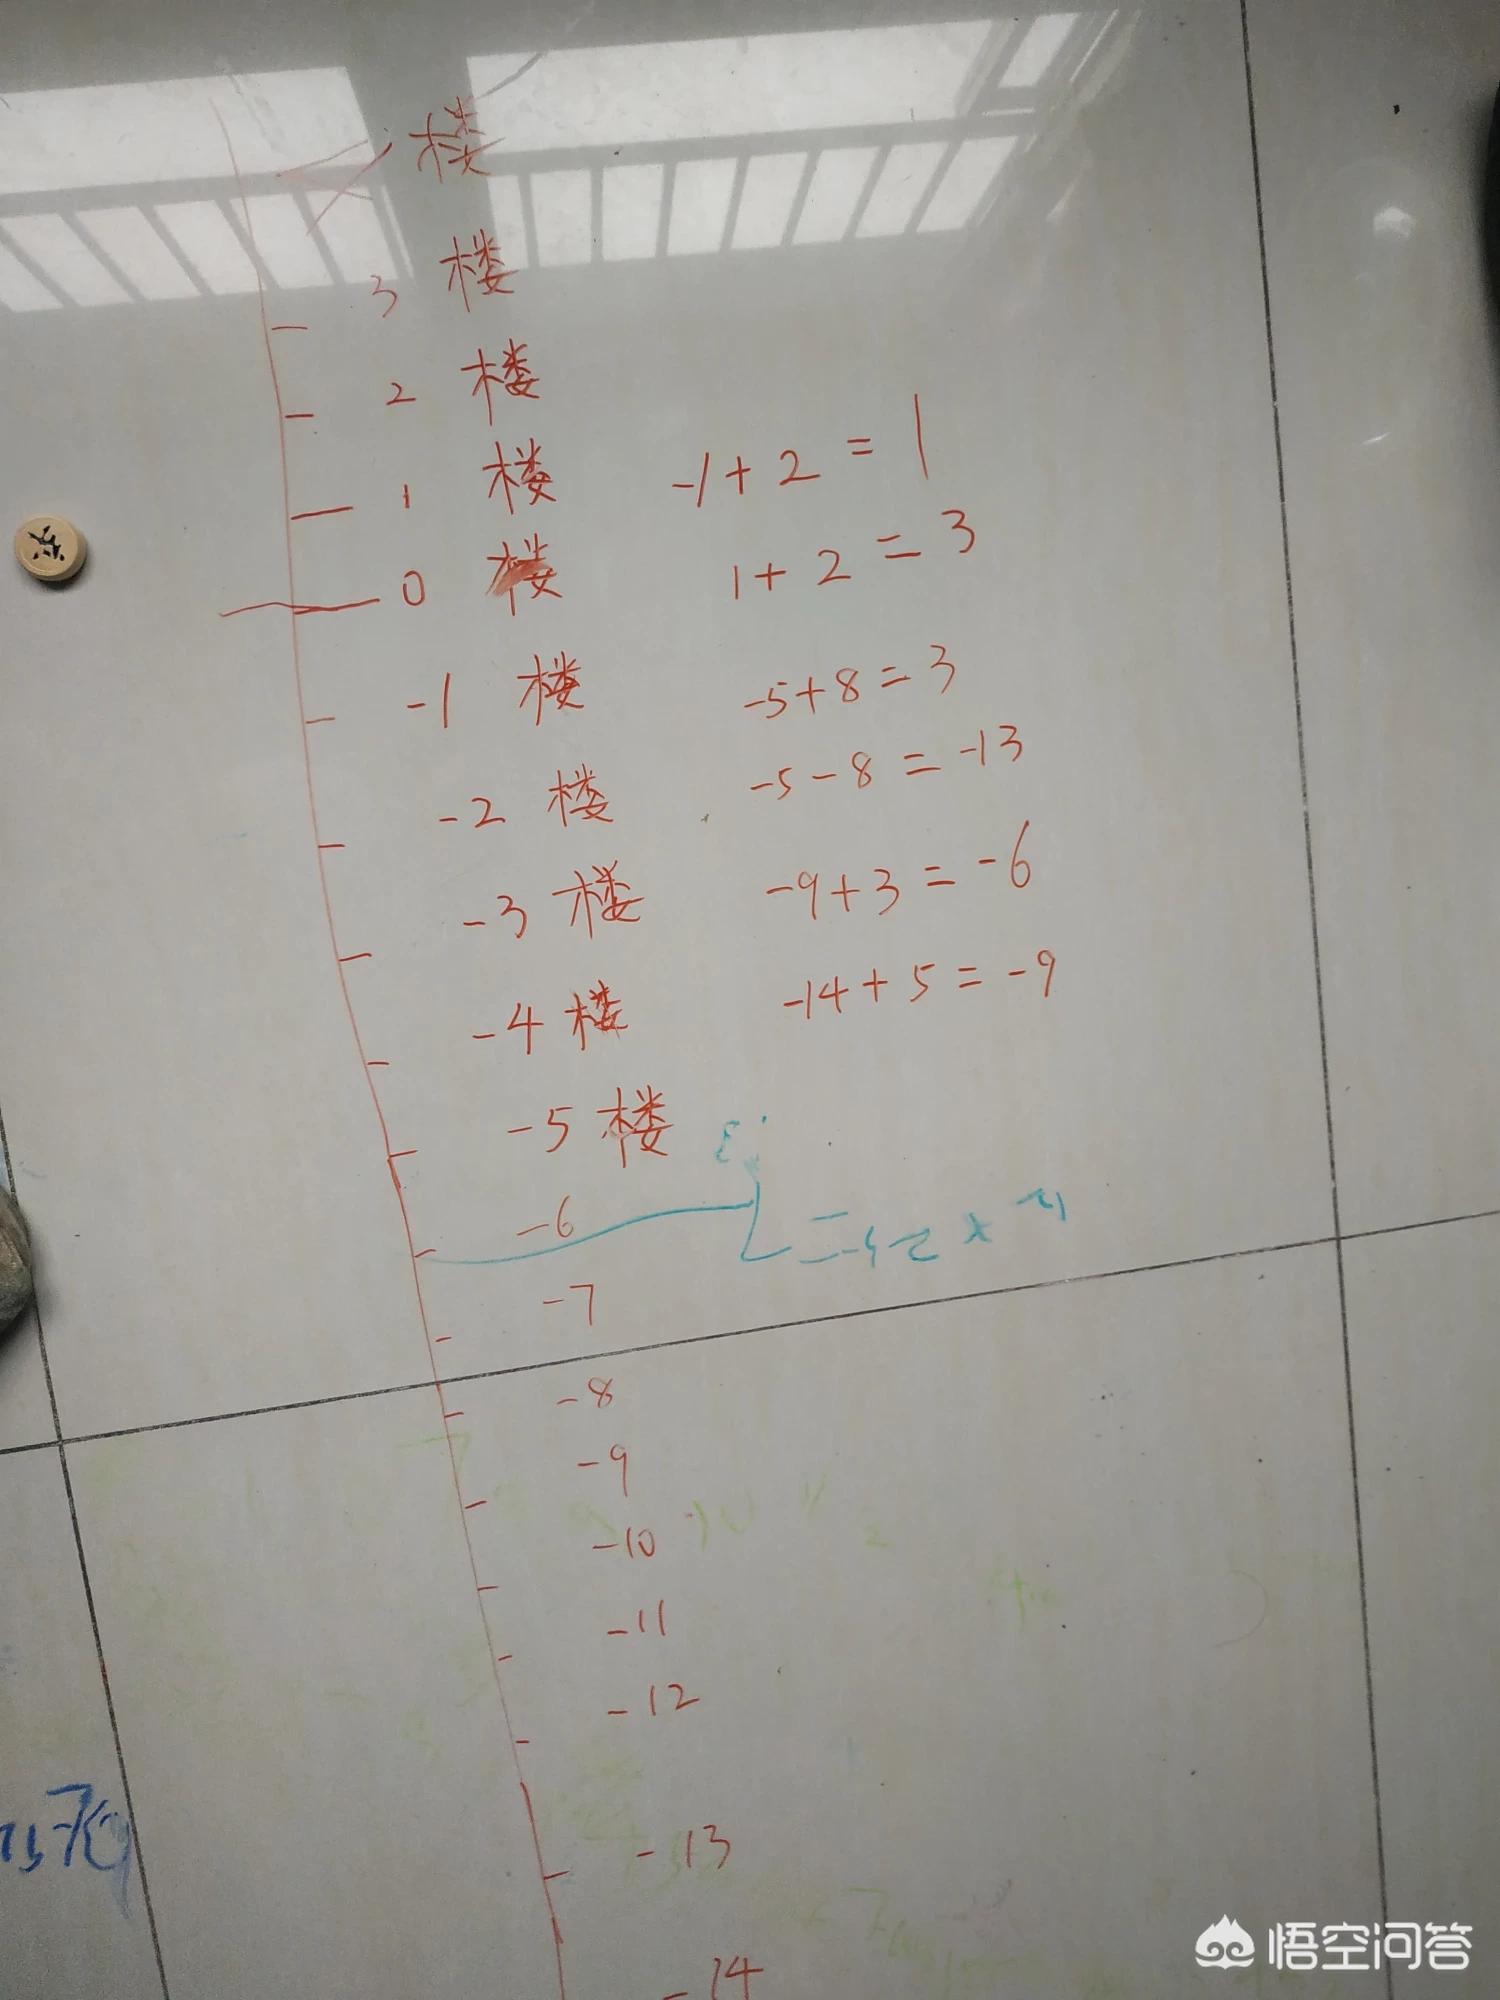 楼
3 楼
2 楼
1 楼 -1+2=1
0 楼 1+2=3
-1 楼 -5+8=3
-2 楼 -5-8=-13
-3 楼 -9+3=-6
-4 楼 -14+5=-9
-5 楼
-6
-7
-8
-9
-10
-11
-12
-13
-14
悟空问答